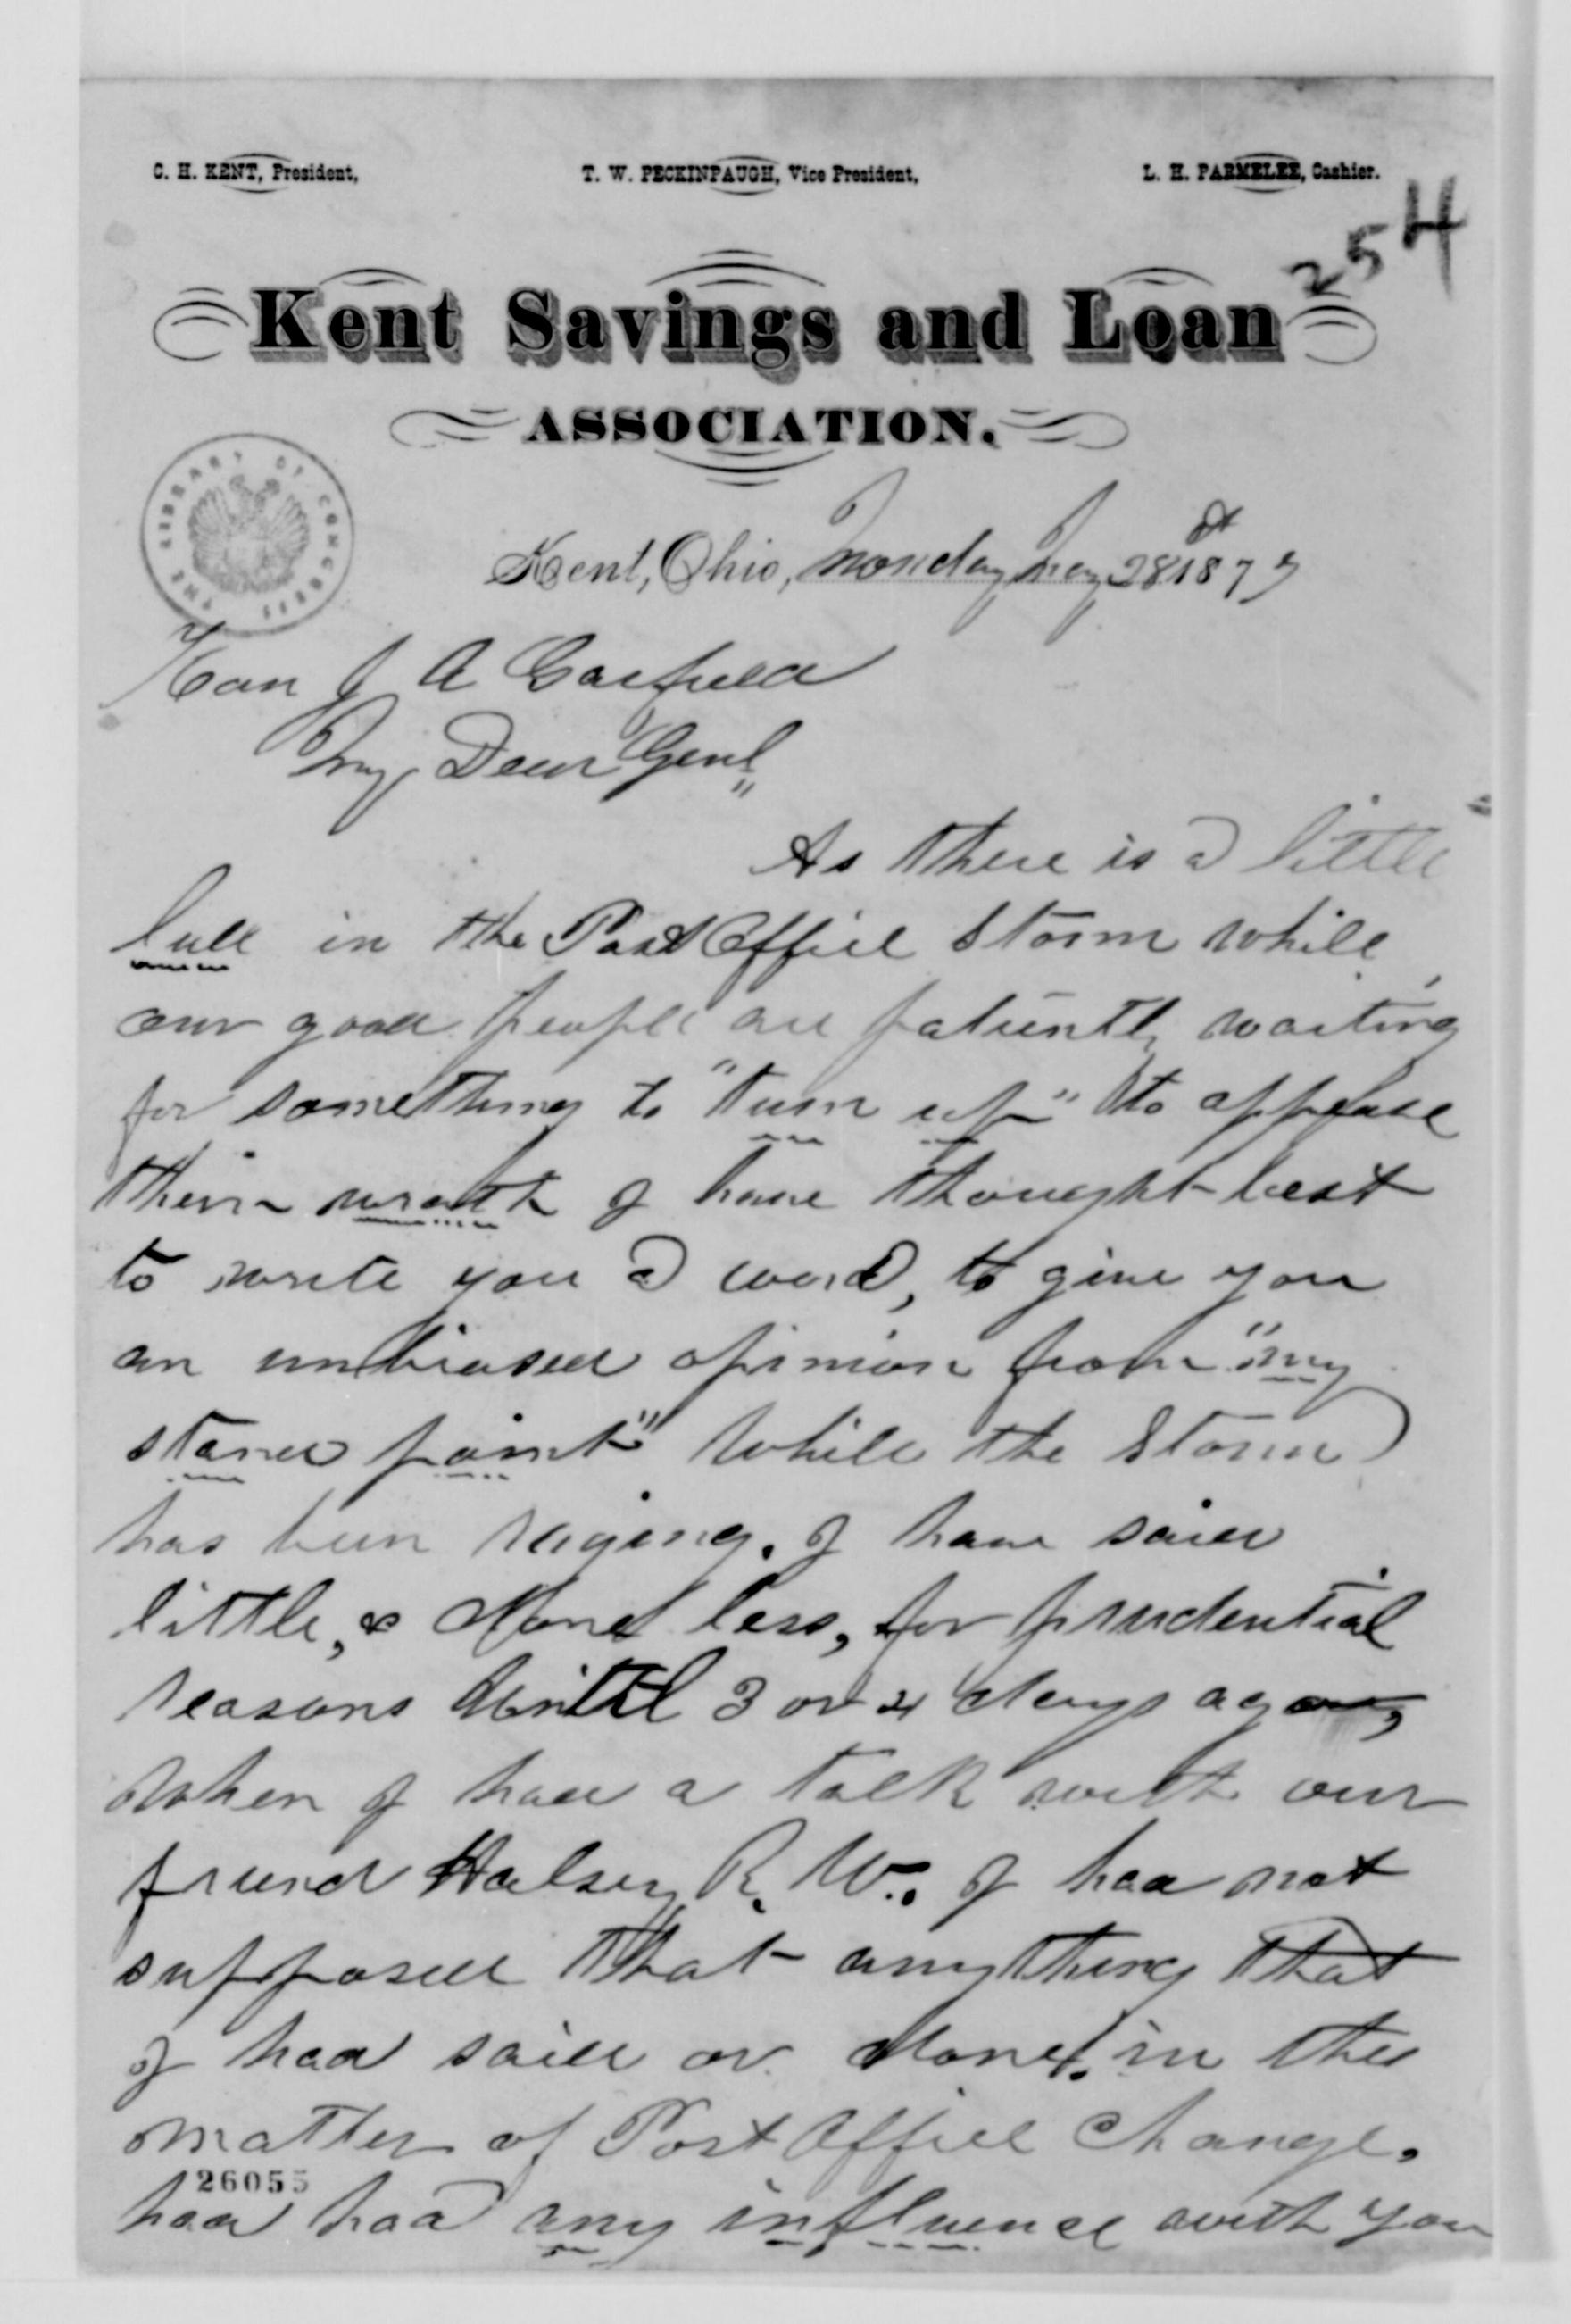 C. H. KENT, President,
T. W. PECKINPAUGH, Vice President,
L. H. PARMELEE, Cashier.
254
Kent Savings and Loan
ASSOCIATION.
THE LIBRARY OF CONGRESS
Kent, Ohio, Monday May 28 1877
Hon J A Garfield
My Dear Genl
As there is a little
lull in the Post Office Storm while
our good people are patiently waiting
for something to "turn up" to appease
their wrath I have thought best
to write you a word, to give you
an unbiased opinion from "my
stand point" While the Storm
has been raging. I have said
little, & done less, for prudential
reasons until 3 or 4 days ago,
when I had a talk with our
friend Halsey R. W. I had not
supposed that anything that
I had said or done, in the
matter of Post Office Change.
26055
had had any influence with you